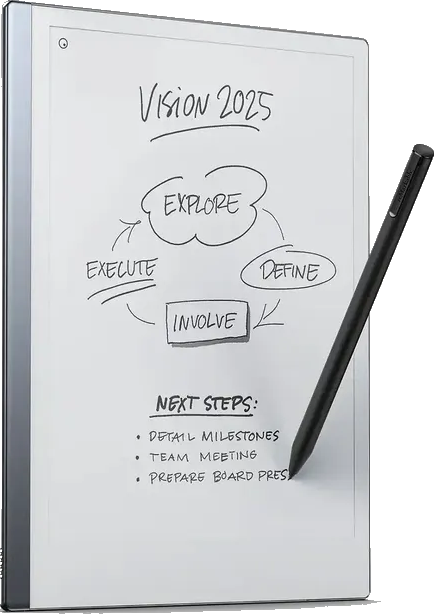 VISION 2025
EXPLORE
EXECUTE
DEFINE
INVOLVE
NEXT STEPS:
• DETAIL MILESTONES
• TEAM MEETING
• PREPARE BOARD PRES